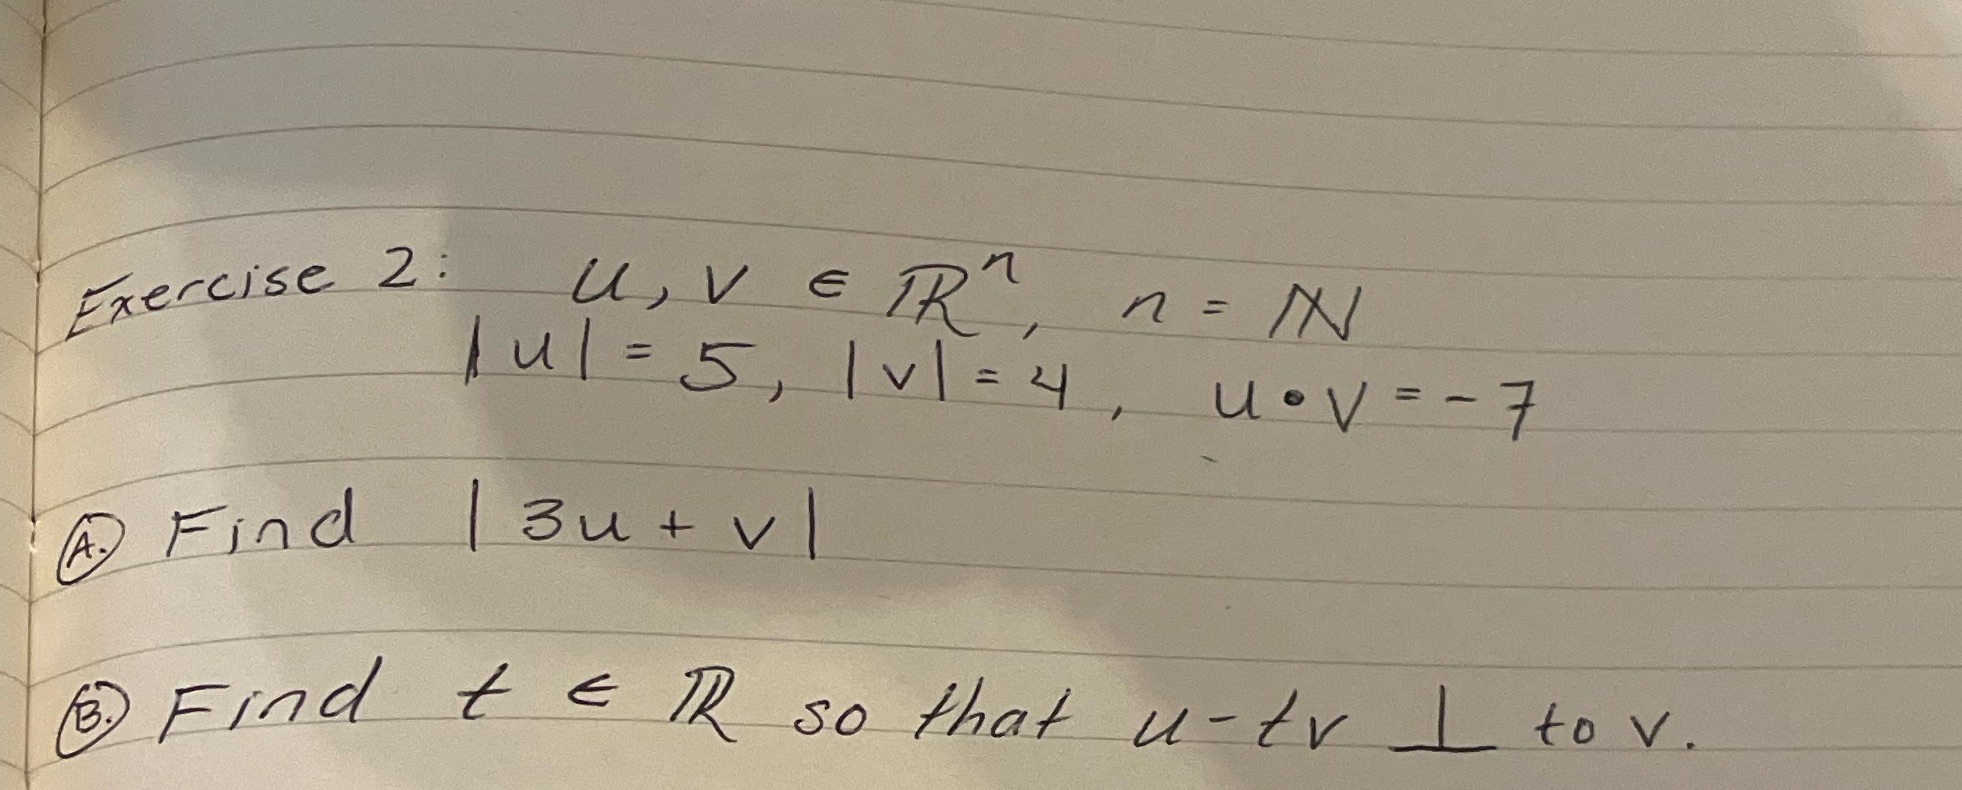 Exercise 2: u, v ∈ ℝⁿ, n = ℕ
|u| = 5, |v| = 4, u • v = -7
A. Find |3u + v|
B. Find t ∈ ℝ so that u - tv ⊥ to v.